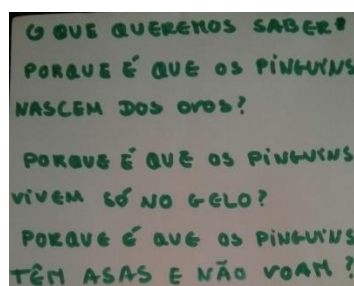 O QUE QUEREMOS SABER?
PORQUE É QUE OS PINGUINS
NASCEM DOS OVOS?
PORQUE É QUE OS PINGUINS
VIVEM SÓ NO GELO?
PORQUE É QUE OS PINGUINS
TÊM ASAS E NÃO VOAM?